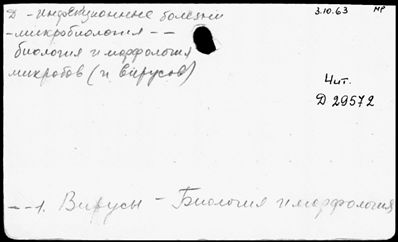 Д - инфекционные болезни
3.10.63
МР
- микробиология - -
биология и морфология
микробов (и вирусов)
Чит.
Д 29572
- - 1. Вирусы - Биология и морфология